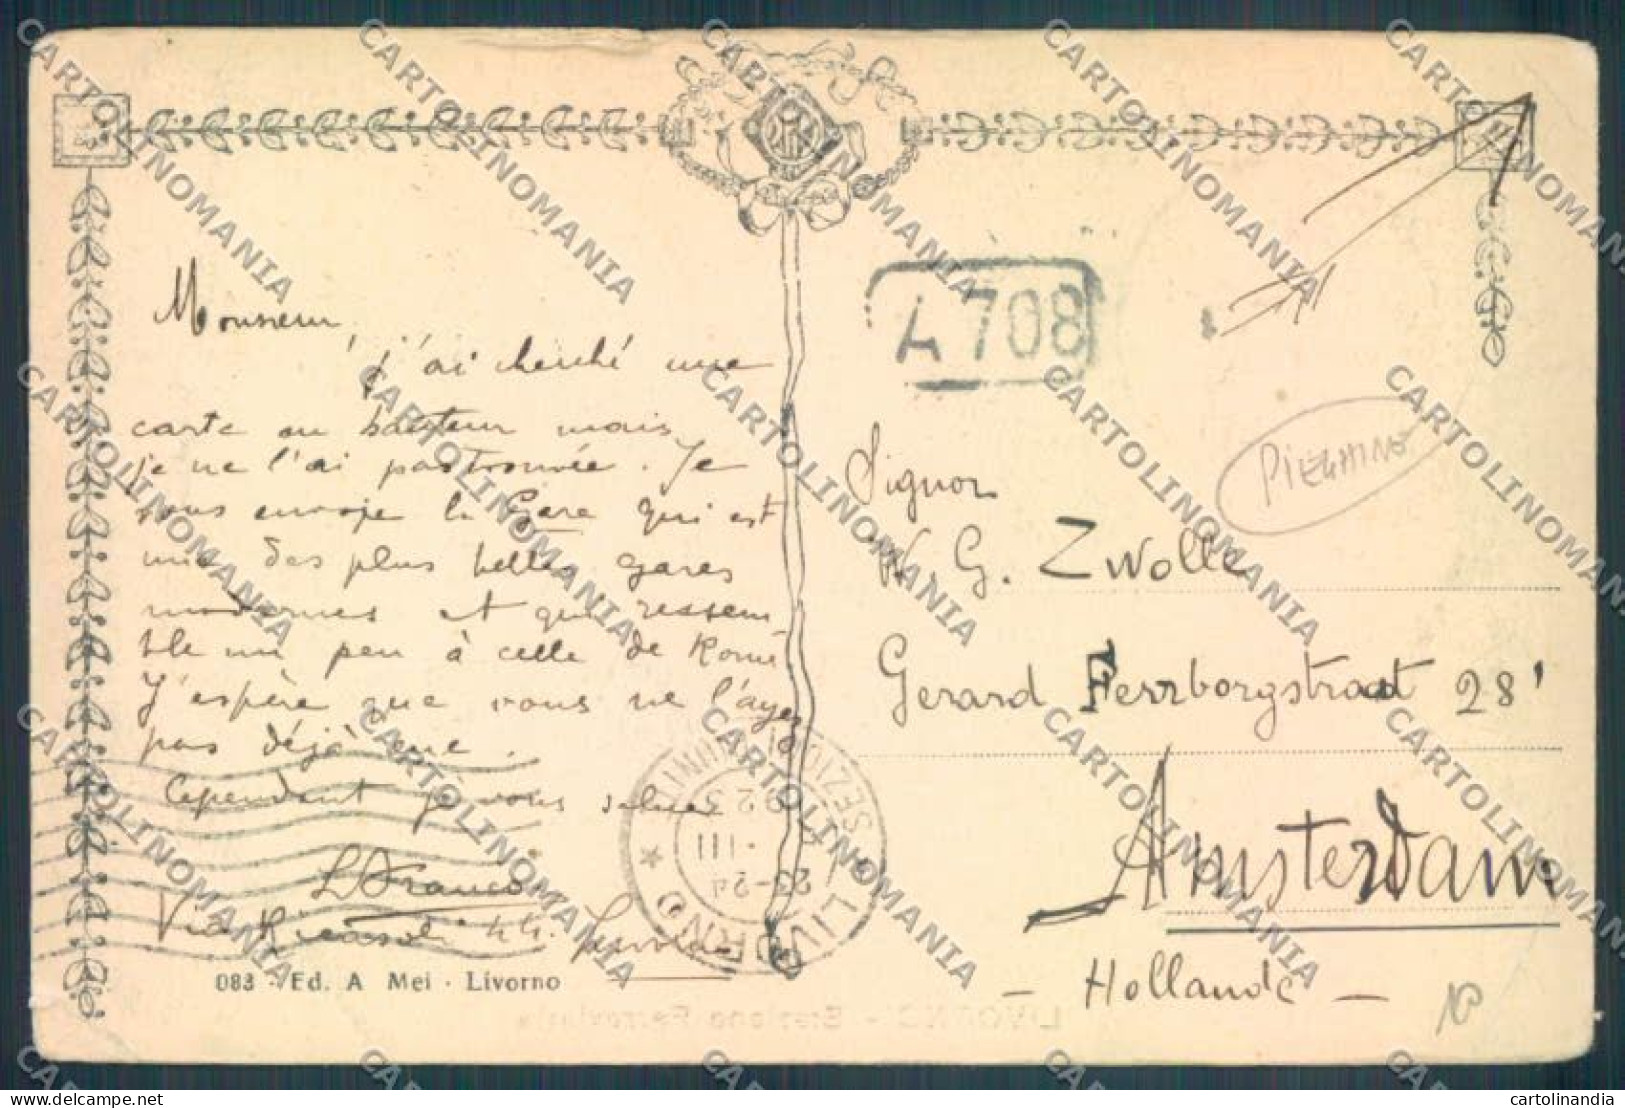 Monsieur,
j'ai cherché une
carte en hauteur mais
je ne l'ai pas trouvée. Je
vous envoie la Gare qui est
une des plus belles gares
modernes et qui ressem
ble un peu à celle de Rome
J'espère que vous ne l'ayez
pas déjà eue.
Cependant je vous salue
L. Franco
Via Ricasoli 44. Livorno
083 - Ed. A Mei - Livorno
A 708
PIEGHINO
Signor
W. G. Zwolle
Gerard Terrborgstraat 28'
Amsterdam
- Hollande -
LIVORNO
23-24
III
923
LIVORNO - Stazione Ferroviaria
CARTOLINOMANIA
cartolinandia